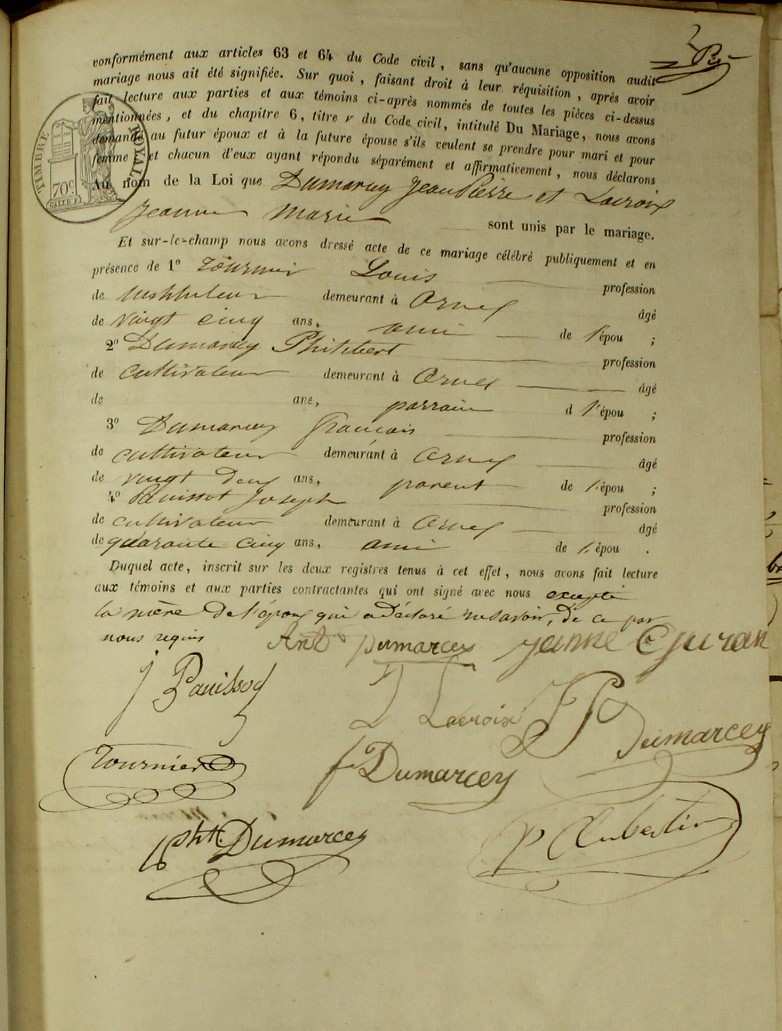 conformément aux articles 63 et 64 du Code civil, sans qu'aucune opposition audit
mariage nous ait été signifiée. Sur quoi, faisant droit à leur réquisition, après avoir
fait lecture aux parties et aux témoins ci-après nommés de toutes les pièces ci-dessus
mentionnées, et du chapitre 6, titre v du Code civil, intitulé Du Mariage, nous avons
demandé au futur époux et à la future épouse s'ils veulent se prendre pour mari et pour
femme et chacun d'eux ayant répondu séparément et affirmativement, nous déclarons
TIMBRE ROYAL
70c
Au nom de la Loi que Dumarcey Jean Pierre et Lacroix
Jeanne Marie sont unis par le mariage.
Et sur-le-champ nous avons dressé acte de ce mariage célébré publiquement et en
présence de 1° Tournier Louis profession
de instituteur demeurant à Arnex âgé
de vingt cinq ans, ami de l'épou ;
2° Dumarcey Philibert profession
de cultivateur demeurant à Arnex âgé
de ans, parrain d l'épou ;
3° Dumarcey francois profession
de cultivateur demeurant à Arnex âgé
de vingt deux ans, parent de l'épou ;
4° Pauissot Joseph profession
de cultivateur demeurant à Arnex âgé
de quarante cinq ans, ami de l'épou .
Duquel acte, inscrit sur les deux registres tenus à cet effet, nous avons fait lecture
aux témoins et aux parties contractantes qui ont signé avec nous excepté
la mère de l'époux qui a déclaré ne savoir, de ce par
nous requis
Ant Dumarcey Jeanne
J Pauissod
Lacroix J P Dumarcey
Tournier
f Dumarcey
phtt Dumarcey